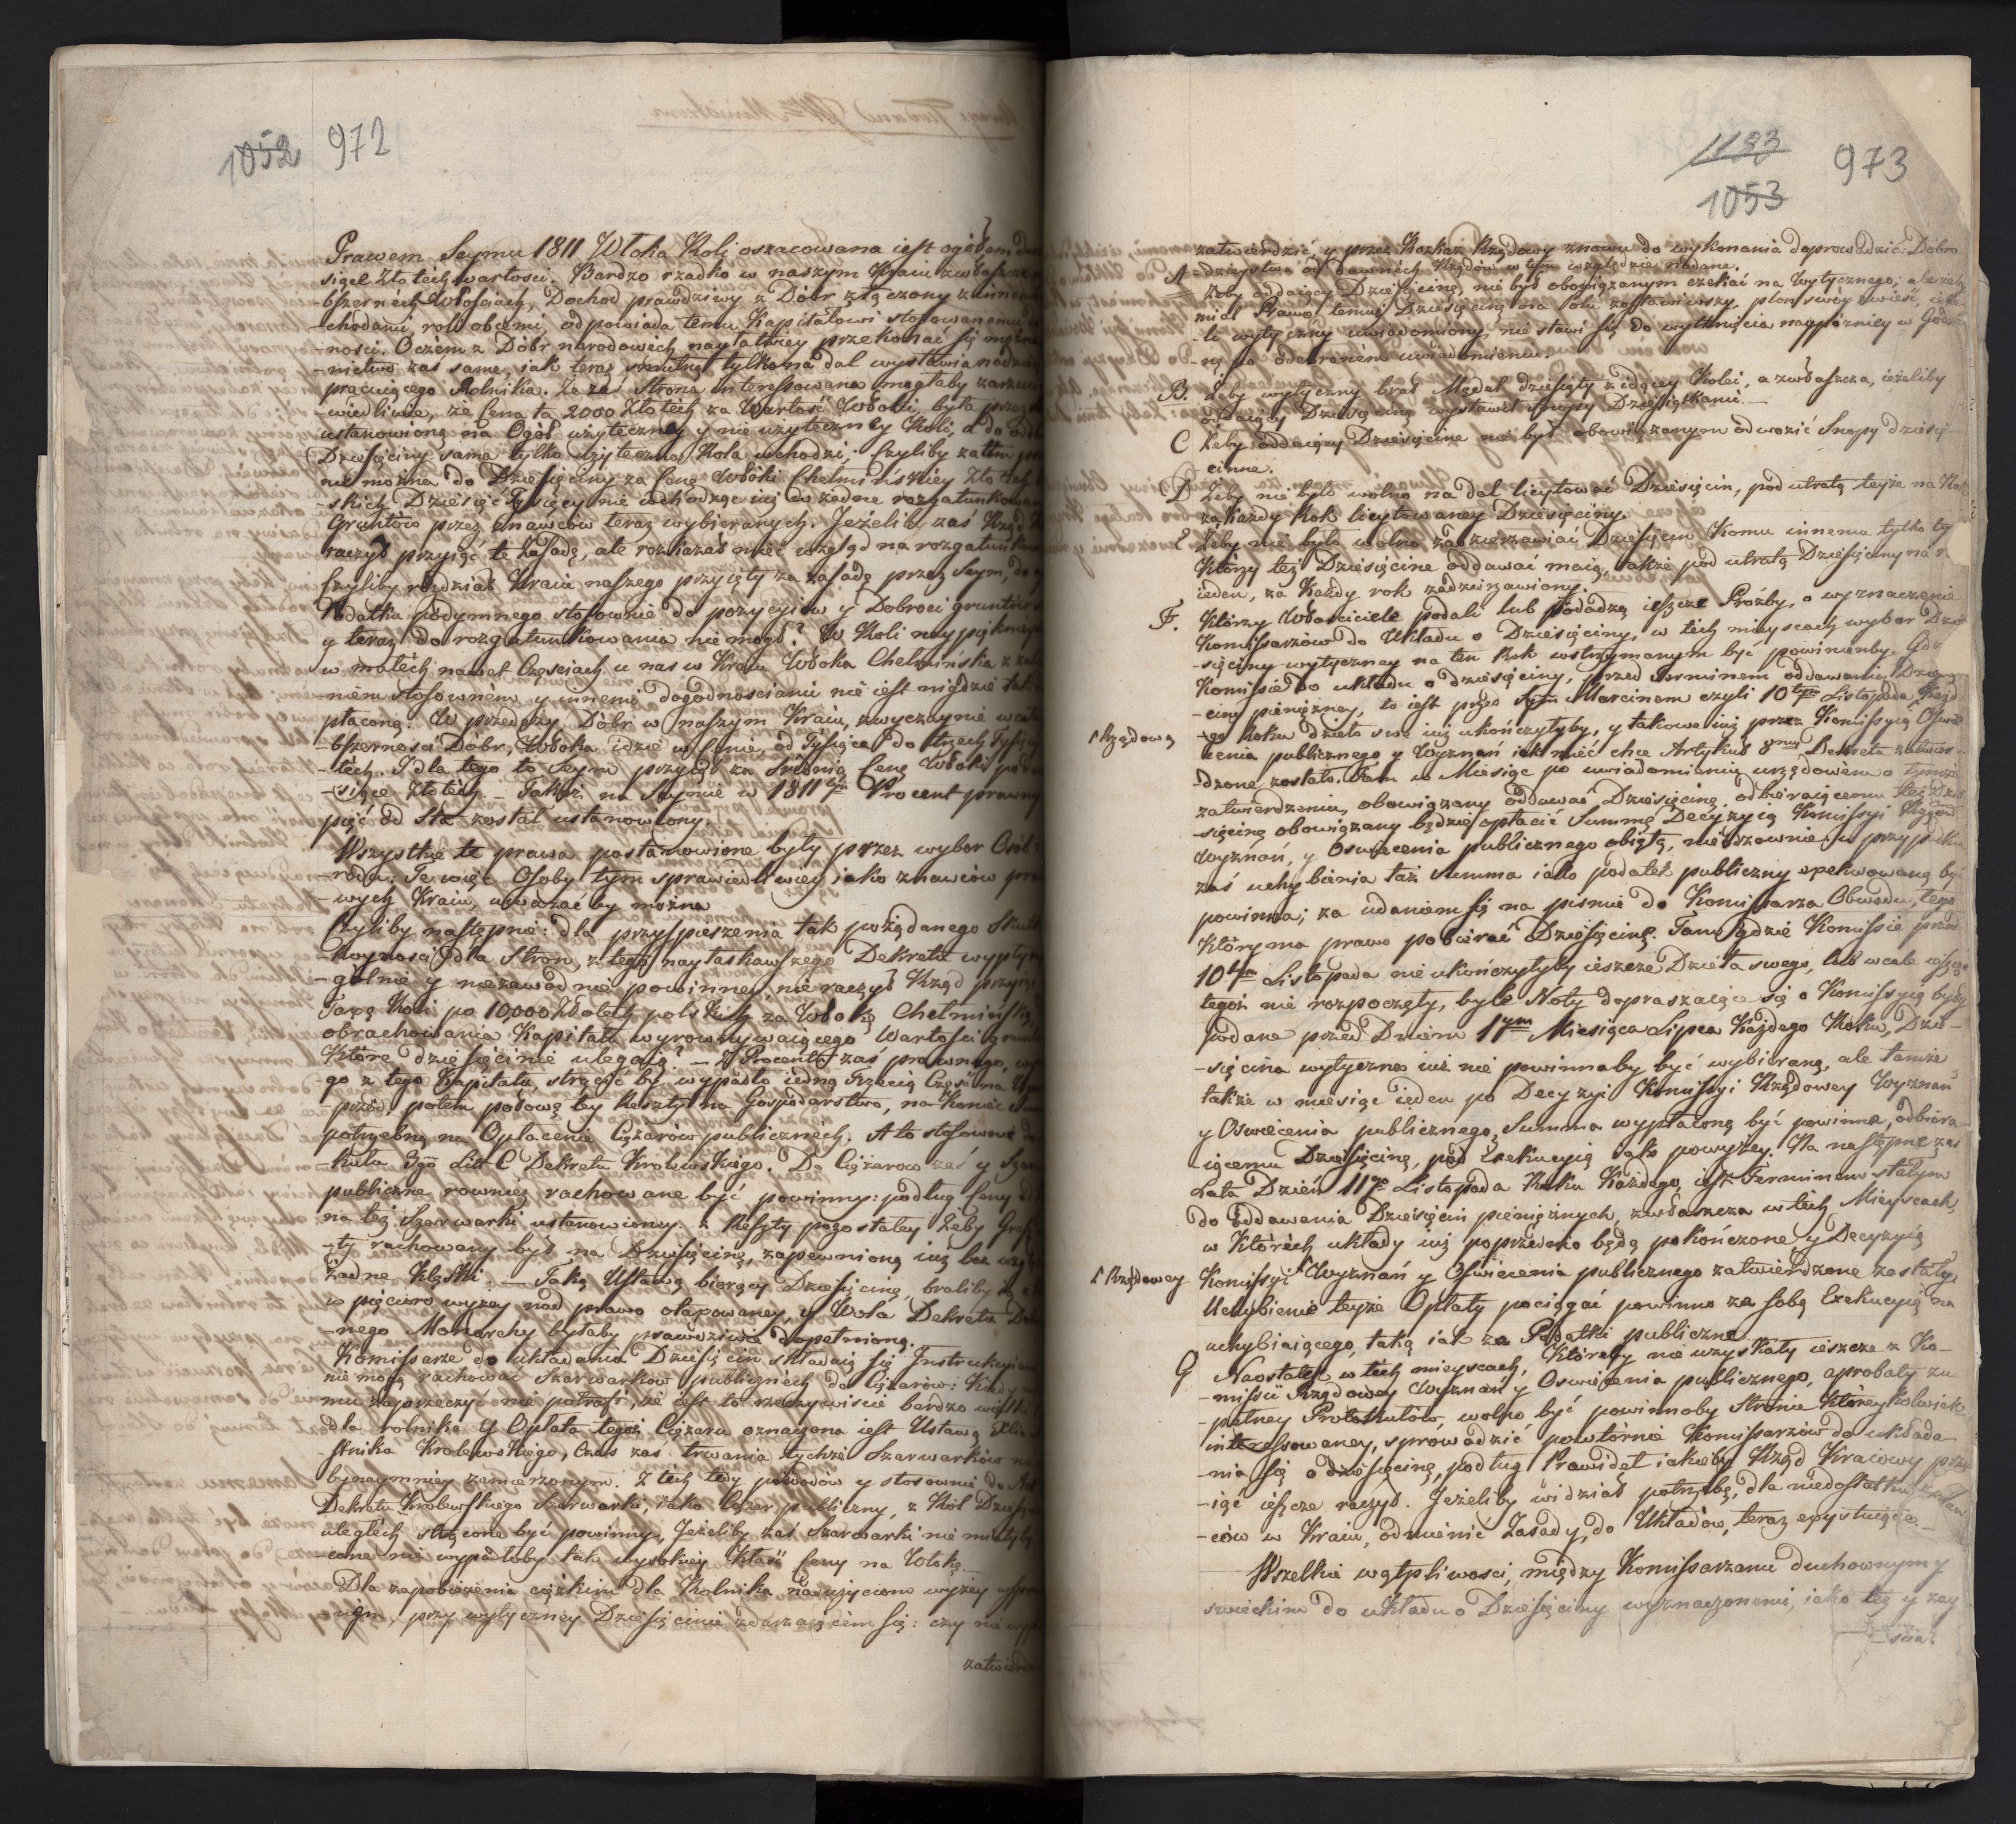 1052 972
Prawem Seymu 1811 Włoka Roli oszacowana iest ogółem
siące Złotych wartości. Bardzo rzadko w naszym Kraiu zwłaszcza
-bszernéch Włościach, Dochod prawdziwy z Dóbr złączony z innemi
-chodami, roli obcémi, odpowiada temu Kapitałowi stosowanemu
-ności. O czém z Dóbr narodowéch nayłatwiey przekonać się można
-nictwo zaś same, iak teraz smutné tylko na dal wystawia nadzieie
pracuiącego Rolnika. Za zaś Strona interessowana mogłaby zarzucić
-wiedliwie, że Cena ta 2000 Złotéch za Wartość Włoki, była przez
ustanowioną na Ogół użyteczney y nie użyteczney Roli, a do odd
Dziesięciny sama tylko użyteczna Rola wchodzi; Czyliby zatém
nie można do Dziesięciny za Cenę Włóki Chełmińskiey Złotéch
-skich Dziesięć Tysięcy nie wchodząc iuż w żadne rozgatunkowan
Gruntów przez znawców teraz wybieranych. Jeżeliby zaś Rząd
raczył przyiąć tę Zasadę, ale rozkazał mieć wzgląd na rozgatunko
Czyliby rozdział Kraiu naszego przyięty za zasadę przez Seym, do
Podatku podymnego stosownie do pozycyiów y Dobroci gruntów
y teraz do rozgatunkowania nie mogł? W Roli naypiękniey
w małéch nawet Częściach u nas w Kraiu Włoka Chełmińska z za
-niém stosowném y innemi dogodnościami nie iest nigdzie tak
płaconą. W przedaży Dóbr w naszym Kraiu, zwyczaynie w cał
-bszerności Dóbr, Włoka idzie w Cenie, od Tysiąca do trzech Tysięcy
-téch. I dla tego to Seym przyiął za średnią Cenę Włoki po
-siące Złotéch. – Także na Seymie w 1811tym Procent prawny
pięć od Sta został ustanowiony.
Wszystkie te prawa postanowione były przez wybor Osób
-rodu: Te więc Osoby tym sprawiedliwiey iako znawców pra
-wych Kraiu, uważać by można
Czyliby następnie: dla przyspieszenia tak pożądanego Skutk
dla Stron, z tego nayłaskawszego Dekretu wypły
-gólnie y niezawodnie powinney, nie raczył Rząd przyiąć
Taxę Roli po 10,000 Złotéch polskich za Włokę Chełmińską
obrachowania Kapitału wyrownywaiącego Wartości grunt
Które dziesięcinie ulegaią? – Z Procentu zaś prawnego, wy
-go z tego Kapitału, strącić by wypadło iedną Trzecią Część na U
-przód, potem połowę tey Reszty na Gospodarstwo, na Koniec
potrzebną na Opłacenie Ciężarów publicznéch. A to stosownie
-kułu 3go Lit: C Dekretu Krolewskiego. Do Ciężarów zaś y Szar
publiczne rownież rachowane być powinny: podług Ceny
na też Szarwarki ustanowioney. z Reszty pozostałey żeby Grosz
-ty rachowany był na Dziesięcinę, zapewnioną iuż bez wzgl
żadne Klęski. – Taką Ustawą biorący Dziesięcinę, braliby
w pięcioro wyżey nad prawo otaxowaney, y Wola Dekretu
-nego Monarchy byłaby prawdziwie dopełnioną.
Komissarze do układania Dziesięcin składaią się Instrukcyiam
nie mogą rachować Szarwarków publicznéch do Ciężarów: Kiedy
mu zaprzeczyć nie potrafi, że iest to rzeczywiście bardzo wielki
dla rolnika. Y Opłata tegoż Ciężaru oznaczona iest Ustawą
-stnika Krolewskiego, Czas zaś trwania tychże Szarwarków
bynaymniey zamierzonym. Z téch tedy powodów y stosownie do
Dekretu Krolewskiego Szarwarki, iako Ciężar publiczny, z Ról Dziesię
uległéch strącone być powinny. Jeżeliby zaś Szarwarki nie miały by
-cone nie wypadłoby tak wysokiey kłaść Ceny na Włokę.
Dla zapobieżenia ciężkim dla Rolnika nadużyciom wyżey
-nym, przy wytyczney Dziesięcinie zdarzaiącém się: czy nie
zatwierd
1193
1053 973
zatwierdzić, y przez Rozkaz Rządowy znowu do wykonania doprowadzić: Dobro
-dzieystwa od dawnéch Rządów w tym względzie nadane.
A Żeby oddaiący Dziesięcinę, nie był obowiązanym czekać na wytycznego; ale żeby
miał Prawo, temuż Dziesięcinę na Polu zostawiwszy, plon swóy zwieść, ieże
-li wytyczny uwiadomiony, nie stawi się do wytknięcia naypóźniey w Godzi
-nę po odebranem uwiadomieniu.
B. Żeby wytyczny brał Mędel dziesiąty z idącey Kolei, a zwłaszcza, ieżeliby
oddaiący Dziesięcinę wystawił snopy Dziesiątkami. –
C Żeby oddaiący Dziesięcine nie był obowiązanym odwozić Snopy dziesię
-cinne.
D Żeby nie było wolno na dal licytować Dziesięcin, pod utratą teyże na Rok
za Każdy Rok licytowaney Dziesięciny.
E Żeby nie było wolno zadzierzawiać Dziesięcin Komu innemu tylko ty
Którzy też Dziesięcine oddawać maią, także pod utratą Dziesięciny na r
ieden, za Każdy rok zadzierżawiony.
F. Którzy Właściciele podali lub podadzą ieszcze Proźby, o wyznaczenie
Komissarzów do Układu o Dziesięciny, w tech mieyscach wybor Dzie
-sięciny wytyczney na ten Rok wstrzymanym być powinienby. Gdz
Komissie do układu o dziesięciny, przed Terminem oddawania Dzie
-ciny pieniężney, to iest przed Sym Marcinem czyli 10tym Listopada Każd
-ego Roku dzieło swe iuż ukończyłyby, y takowe iuż przez Komissyią Oświe
⌈ Rządową
cenia publicznego y Wyznań iak mieć chce Artykuł 8my Dekretu zatwier
-dzone zostało. Tam w Miesiąc po uwiadomieniu urzędowém o tymże
zatwierdzeniu obowiązany oddawać Dziesięcinę, odbieraiącemu też Dzie
-sięcinę obowiązany będzie opłacić Summę Decyzyią Komissyi Rządow
Wyznań, y Oswiecenia publicznego obiętą, niezawodnie: w przypadku
zaś uchybienia taż Summa iako podatek publiczny exekwowaną by
powinna; za udaniem się na pismie do Komissarza Obwodu, tego
Który ma prawo pobierać Dziesięcinę. Tam gdzie Komissie przed
10tym Listopada nie ukończyłyby ieszcze Dzieła swego, lub wcale ieszcze
tegoż nie rozpoczęły, byle Noty dopraszaiące się o Komissyią były
podane przed Dniem 1ym Miesiąca Lipca Każdego Roku, Dzie-
-sięcina wytyczna iuż nie powinnaby być wybieraną, ale tamże
także w miesiąc ieden po Decyzyi Komissyi Rządowey Wyznań
y Oswiecenia publicznego, Summa wypłaconą być powinna, odbiera
-iącemu Dziesięcinę, pod Exekucyią iako powyżey. Na następne zaś
Lata Dzień 11go Listopada Roku Każdego, iest Terminem stałym
do oddawania Dziesięcin pieniężnych, zwłaszcza w téch Mieyscach,
w Któréch układy iuż poprzednio będą pokończone y Decyzyią
⌈ Rządowey Komissyi ⌈Wyznań y Oświecenia publicznego zatwierdzone zostały,
Uchybienie teyże Opłaty pociągać powinno za sobą Exekucyią na
uchybiaiącego, taką iak za Podatki publiczne.
G Naostatek w téch mieyscach, Któreby nie uzyskały ieszcze z Ko-
-missii Rządowey Wyznań y Oświecenia publicznego, aprobaty zu
-pełney Protokułów, wolno być powinnoby Stronie Któreykolwiek
interessowaney, sprowadzić powtórnie Komissarzów do układa-
-nia się o dziesięcinę, podług Prawideł iakieby Rząd Kraiowy przy
-iąć ieszcze raczył. Jeżeliby widział potrzebę, dla niedostatku
-ców w Kraiu, odmienić Zasady do Układów, teraz exystuiące. –
Wszelkie wątpliwości, między Komissarzami duchownym y
swieckim do układu o Dziesięciny wyznaczonemi, iako też y zay
-scia.